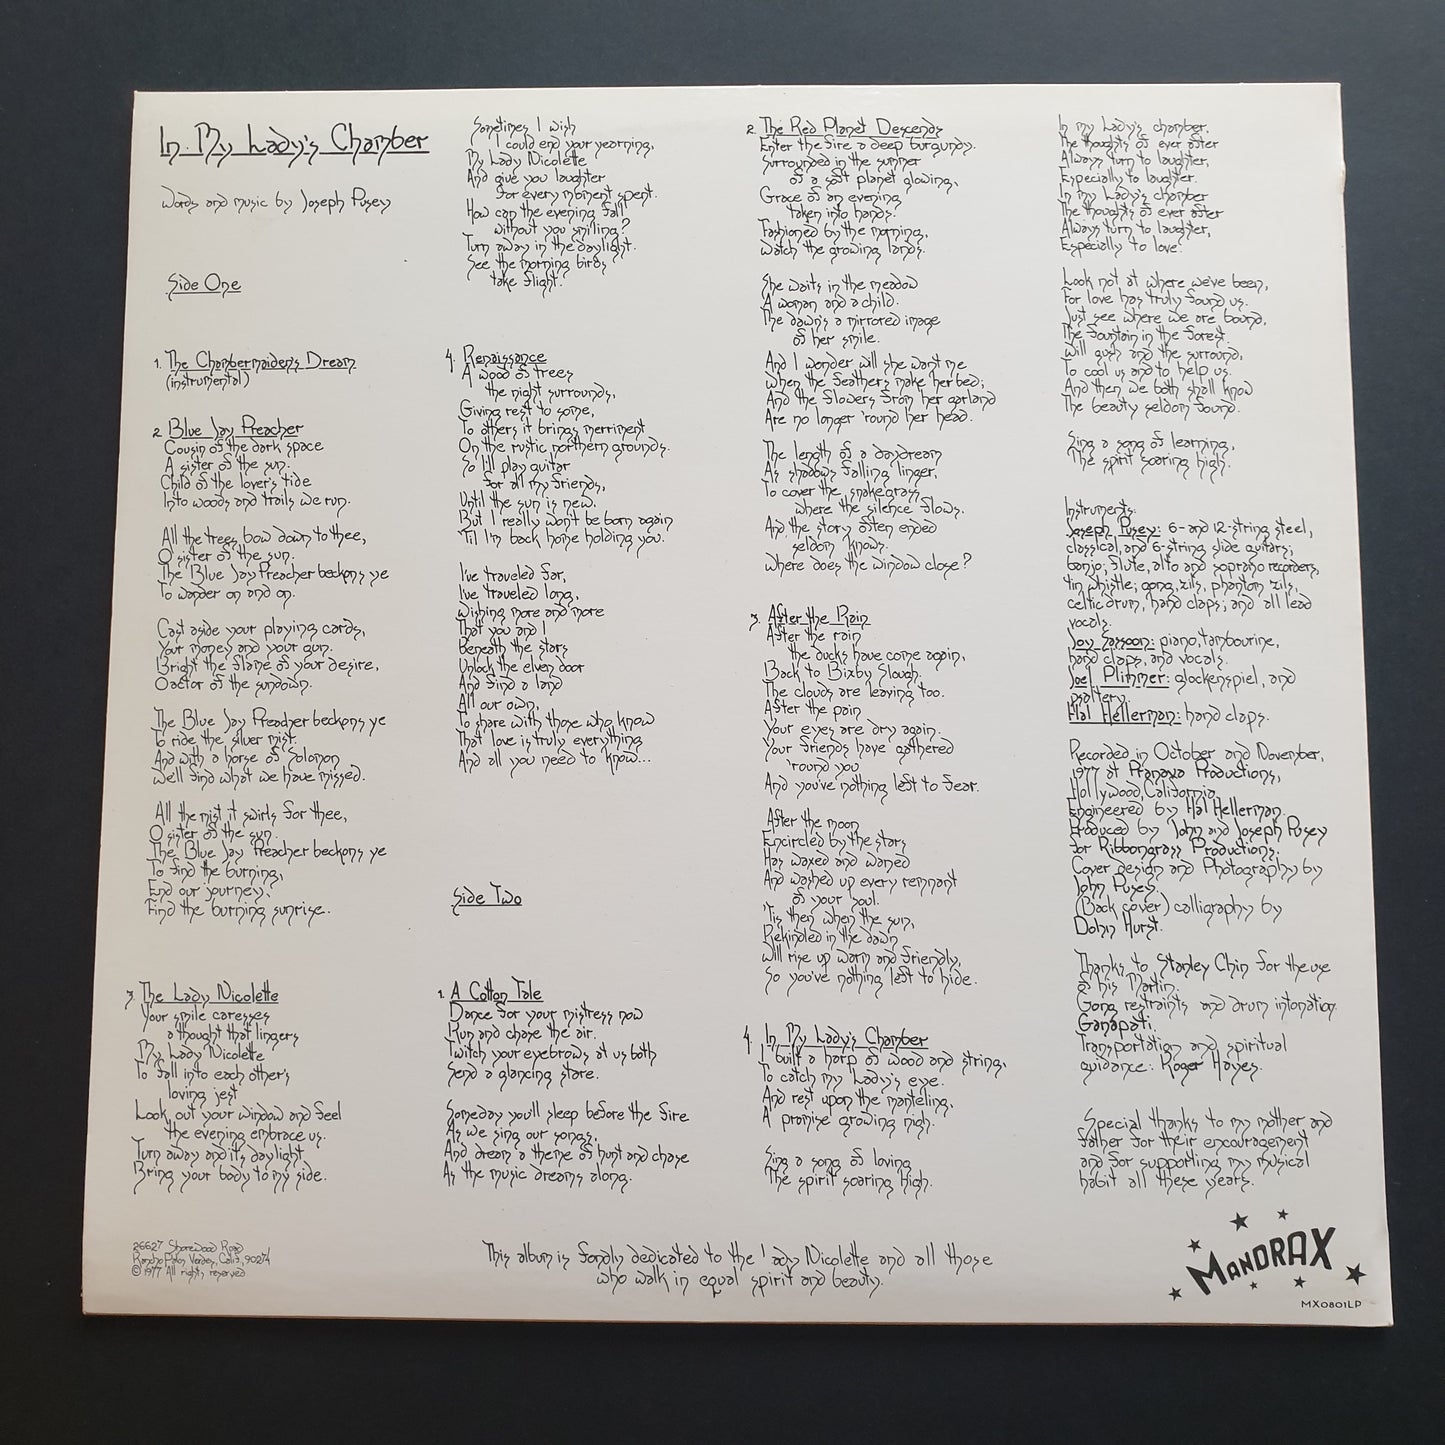 In My Lady's Chamber
Words and music by Joseph Pusey
Side One
1. The Chambermaiden's Dream
(instrumental)
2. Blue Jay Preacher
Cousin of the dark space
A sister of the sun.
Child of the lover's tide
Into woods and trails we run.
All the trees bow down to thee,
O sister of the sun.
The Blue Jay Preacher beckons ye
To wander on and on.
Cast aside your playing cards,
Your money and your gun.
Bright the flame of your desire,
O actor of the sundown.
The Blue Jay Preacher beckons ye
To ride the silver mist.
And with a horse of Solomon
We'll find what we have missed.
All the mist it swirls for thee,
O sister of the sun.
The Blue Jay Preacher beckons ye
To find the burning,
End our journey.
Find the burning sunrise.
3. The Lady Nicolette
Your smile caresses
a thought that lingers
My Lady Nicolette
To fall into each other's
loving jest
Look out your window and feel
the evening embrace us.
Turn away and it's daylight
Bring your body to my side.
Sometimes I wish
I could end your yearning,
My Lady Nicolette
And give you laughter
for every moment spent.
How can the evening fall
without you smiling?
Turn away in the daylight.
See the morning birds
take flight.
4. Renaissance
A wood of trees
the night surrounds,
Giving rest to some,
To others it brings merriment
On the rustic northern grounds.
So I'll play guitar
for all my friends,
Until the sun is new.
But I really won't be born again
'Til I'm back home holding you.
I've traveled far,
I've traveled long,
Wishing more and more
That you and I
Beneath the stars
Unlock the elven door
And find a land
All our own,
To share with those who know
That love is truly everything
And all you need to know...
Side Two
1. A Cotton Tale
Dance for your mistress now
Run and chase the air.
Twitch your eyebrows at us both
Send a glancing stare.
Someday you'll sleep before the fire
As we sing our songs,
And dream a theme of hunt and chase
As the music dreams along.
2. The Red Planet Descends
Enter the fire a deep burgundy.
Surrounded in the summer
of a soft planet glowing,
Grace of an evening
taken into hands.
Fashioned by the morning,
Watch the growing lands.
She waits in the meadow
A woman and a child.
The dawn's a mirrored image
of her smile.
And I wonder will she want me
When the feathers make her bed;
And the flowers from her garland
Are no longer 'round her head.
The length of a daydream
As shadows falling linger,
To cover the snakegrass
where the silence flows.
And the story often ended
seldom knows.
Where does the window close?
3. After the Rain
After the rain
the ducks have come again,
Back to Bixby Slough.
The clouds are leaving too.
After the pain
Your eyes are dry again.
Your friends have gathered
'round you
And you've nothing left to fear.
After the moon
Encircled by the stars
Has waxed and waned
And washed up every remnant
of your soul.
'Tis then when the sun,
Rekindled in the dawn
Will rise up warm and friendly,
So you've nothing left to hide.
4. In My Lady's Chamber
I built a harp of wood and string,
To catch my Lady's eye.
And rest upon the manteling,
A promise growing nigh.
Sing a song of loving
The spirit soaring high.
In my Lady's chamber.
The thoughts of ever after
Always turn to laughter,
Especially to laughter.
In my Lady's chamber
The thoughts of ever after
Always turn to laughter,
Especially to love.
Look not at where we've been,
For love has truly found us.
Just see where we are bound,
The fountain in the forest.
Will gush and the surround,
To cool us and to help us.
And then we both shall know
The beauty seldom found.
Sing a song of learning,
The spirit soaring high.
Instruments:
Joseph Pusey: 6- and 12-string steel,
classical, and 6-string slide guitars;
banjo; flute, alto and soprano recorders,
tin whistle; gong, zils, phantom zils,
celtic drum, hand claps; and all lead
vocals.
Joy Sassoon: piano, tambourine,
hand claps, and vocals.
Joel Plimmer: glockenspiel, and
psaltery.
Hal Hellerman: hand claps.
Recorded in October and November,
1977 at Pranava Productions,
Hollywood, California.
Engineered by Hal Hellerman.
Produced by John and Joseph Pusey
for Ribbongrass Productions.
Cover design and Photography by
John Pusey.
(Back cover) calligraphy by
Hurst.
Thanks to Stanley Chin for the use
of his Martin.
Gong restraints and drum intonation
Ganapati.
Transportation and spiritual
guidance: Roger Hayes.
Special thanks to my mother and
father for their encouragement
and for supporting my musical
habit all these years.
26627 Shorewood Road
Rancho Palos Verdes, Calif., 90274
© 1977 All rights reserved
This album is fondly dedicated to the Lady Nicolette and all those
who walk in equal spirit and beauty.
MANDRAX
MX0801LP